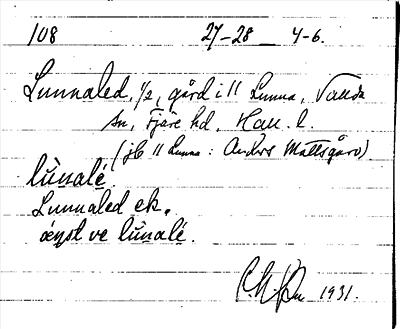 108 27-28 4-6.
Lunnaled, 1/2, gård i 11 Lunna, Vallda
sn, Fjäre hd, Hall. l.
(jb 11 Lunna: Anders Mattsgård)
lùnalé
Lunnaled ek.
ve lùnalé.
1931.